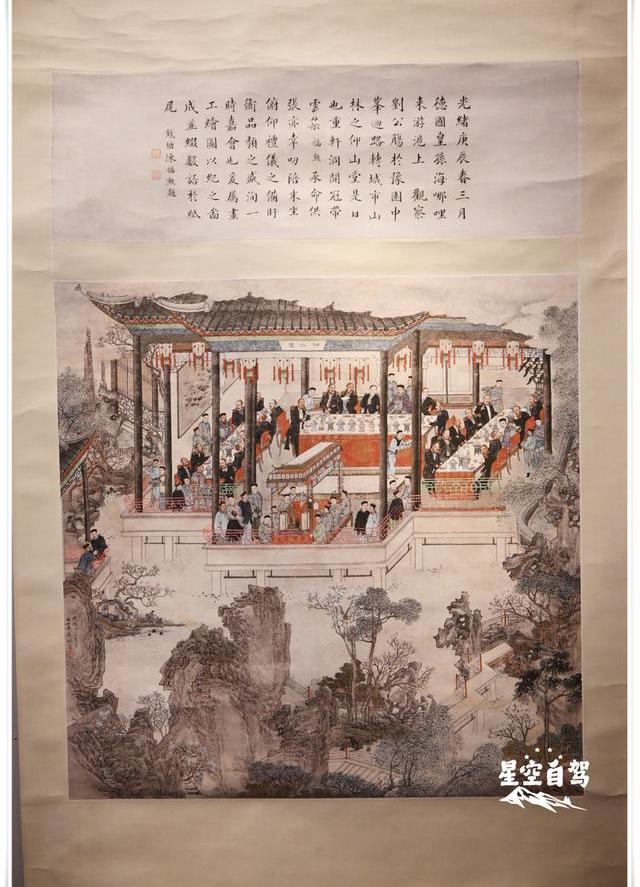 光緒庚辰春三月
德國皇孫海哪哩
來游滬上 觀察
劉公觴於豫園中
峯迴路轉城市山
林之仰山堂是日
也重軒洞開冠帶
雲集福勲承命供
張亦幸叨陪末坐
俯仰禮儀之備盱
衡品類之盛洵一
時嘉會也爰屬畫
工繪圖以紀之啚
成並綴數語於紙
尾
錢塘陳福勲題
仰山堂
星空自驾